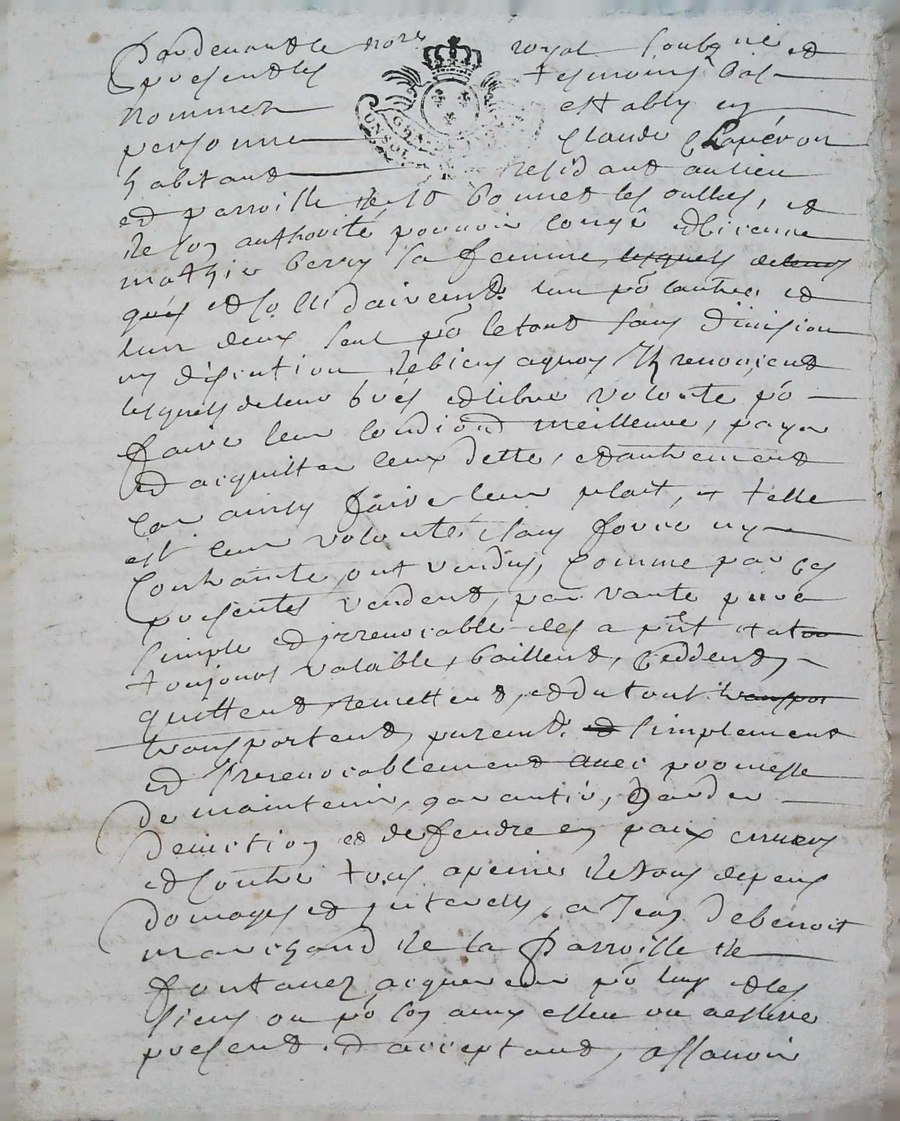 Pardevant le nore royal soubsigné et
presents les tesmoins bas
nommez estably en
personne Claude Chapéron
habitant residant au lieu
et parroisse de St Bonnet les oulles, et
de son authorité pouvoir congé et licence
mathie berry sa femme, lesquels de leurs
gués et sollidairement lun po lautre et
lun deux seul po le tout sans division
ny discution de biens a quoy Ilz renoncent
lesquels de leur grés et libre volonté po
faire leur condiond meilleure, payer
et acquitter leux dette, et autrement
car ainsy faire leur plait, et telle
est leur volonté, sans force ny
Contrainte, ont vendus, comme par ces
presentes vendent, par vante pure
simple et irrevocable des a pnt et a tou
toujours valable, baillent, ceddent,
quittent, remettent, et du tout transpor
transportent, puremt et simplement
et Irrevocablement avec promesse
de maintenir, garantir,
deviction et deffendre en paix envers
et contre tous a peine de tous depens
domages et interests, a Jean Debenoit
marchand de la parroisse de
fontanez acquereur po luy et les
siens ou po son amy esleu ou a eslire
present et acceptant, assavoir
GNAL
UN SOL